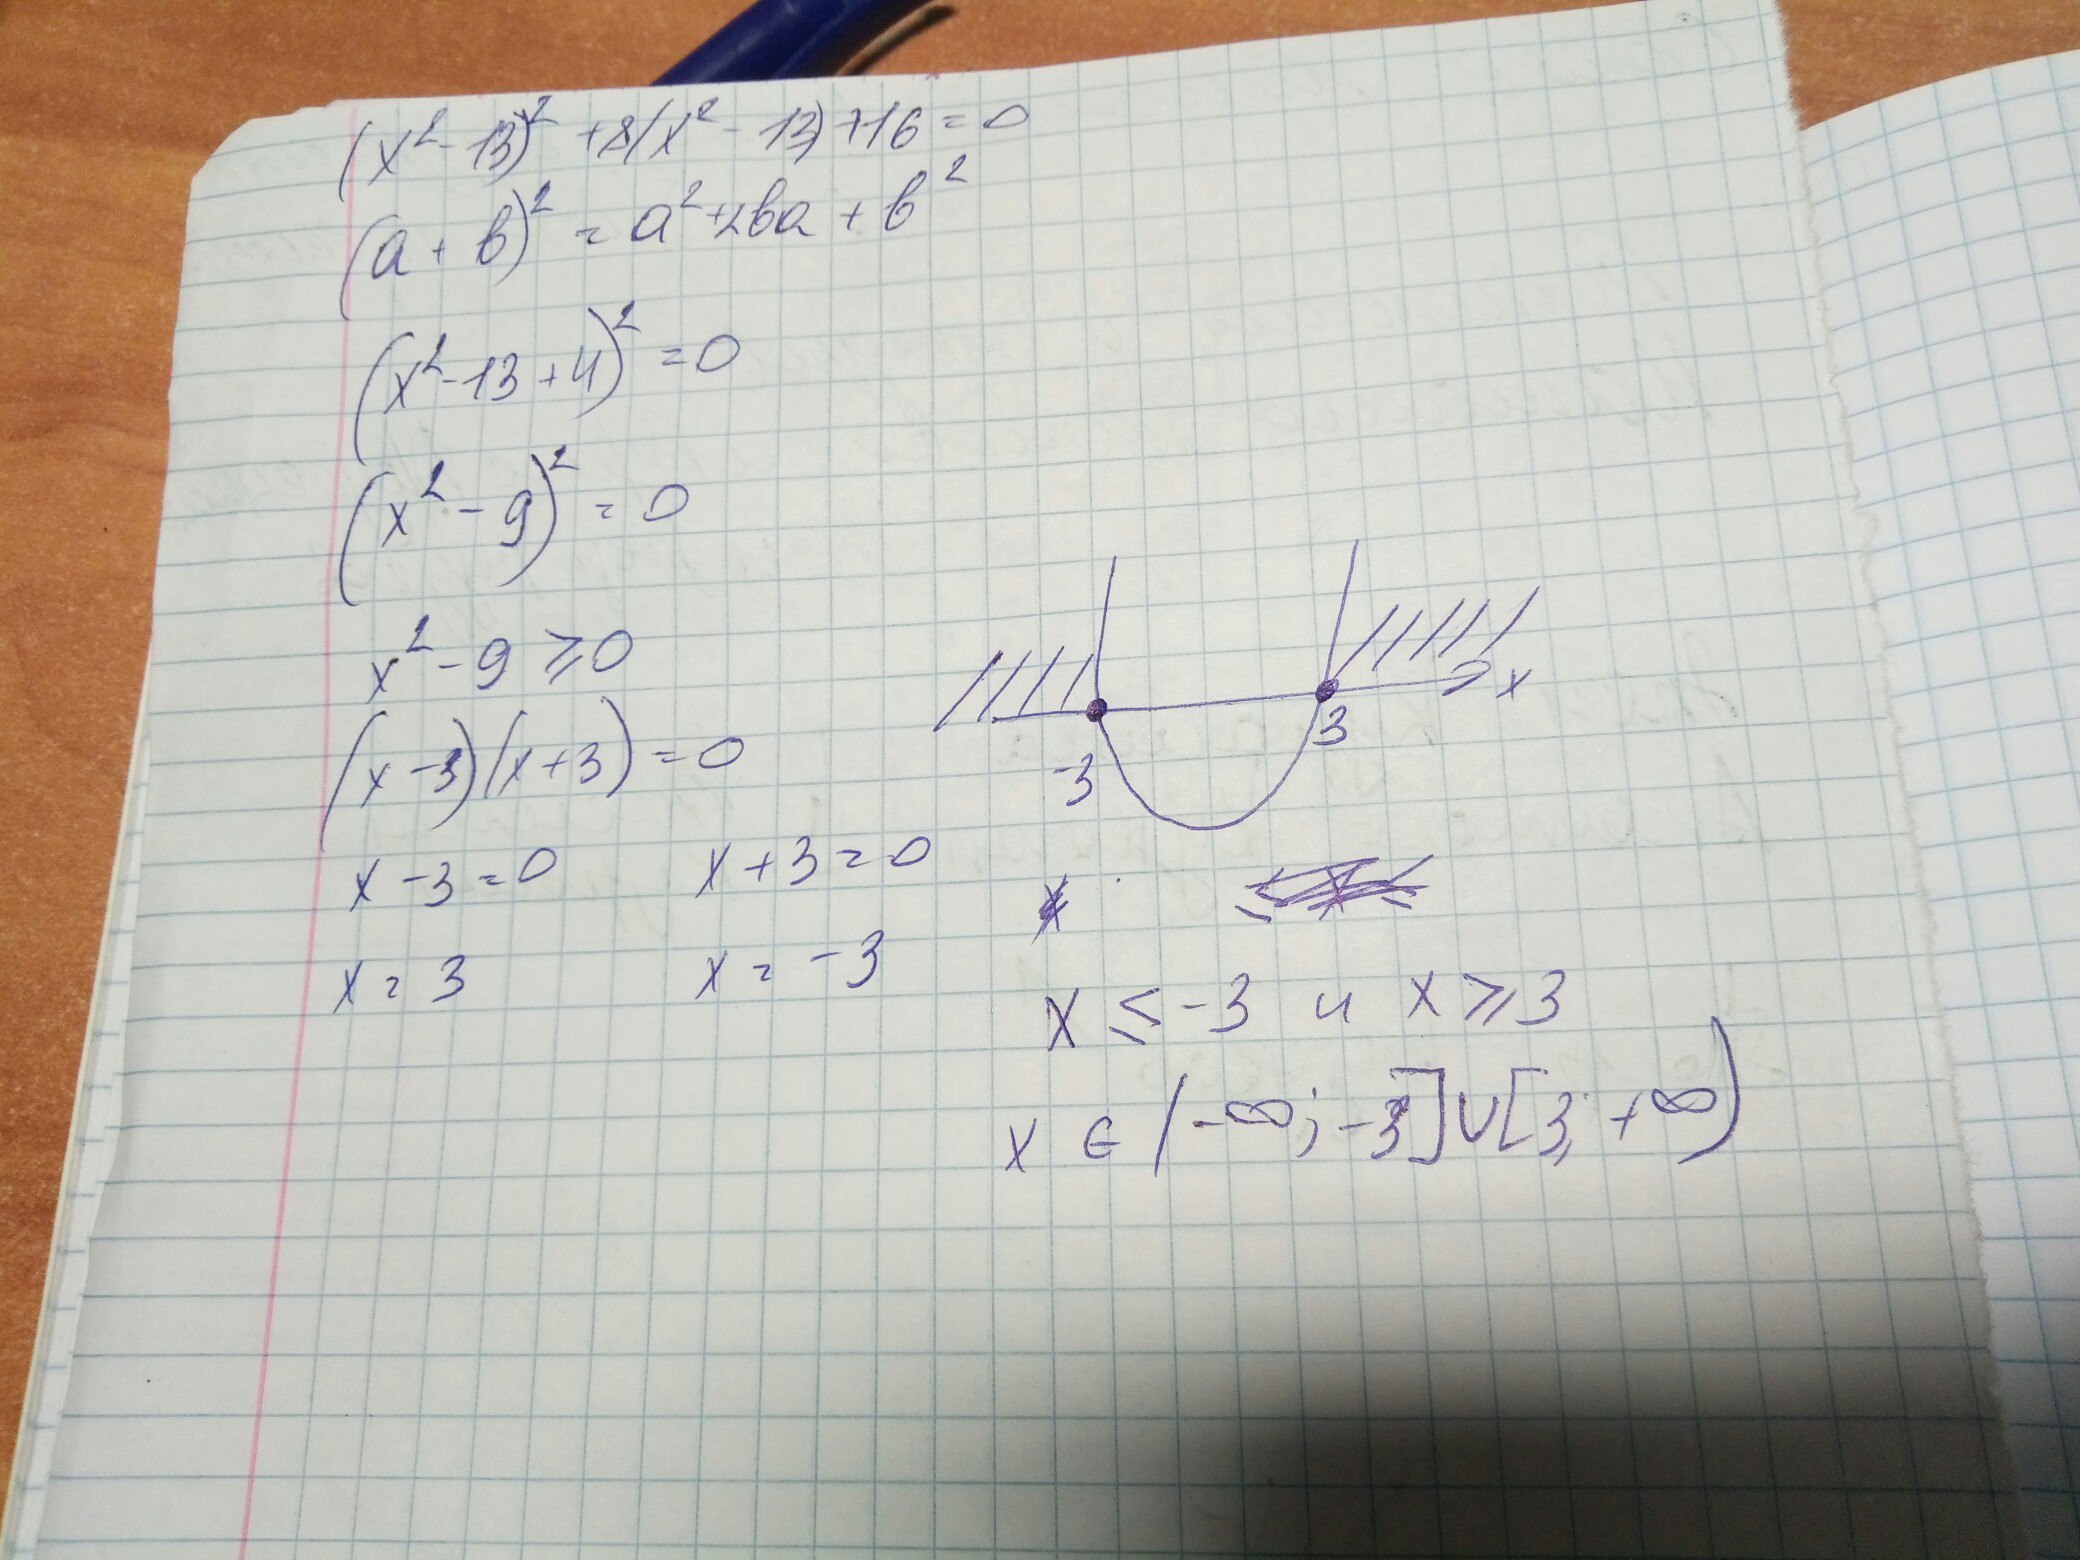 (x² - 13)² + 8(x² - 13) + 16 = 0
(a + b)² = a² + 2ba + b²
(x² - 13 + 4)² = 0
(x² - 9)² = 0
x² - 9 ⩾ 0
(x - 3)(x + 3) = 0
x - 3 = 0 x + 3 = 0
x = 3 x = -3
x
-3 3
x ≤ -3 и x ⩾ 3
x ∈ (-∞; -3] ∪ [3; +∞)